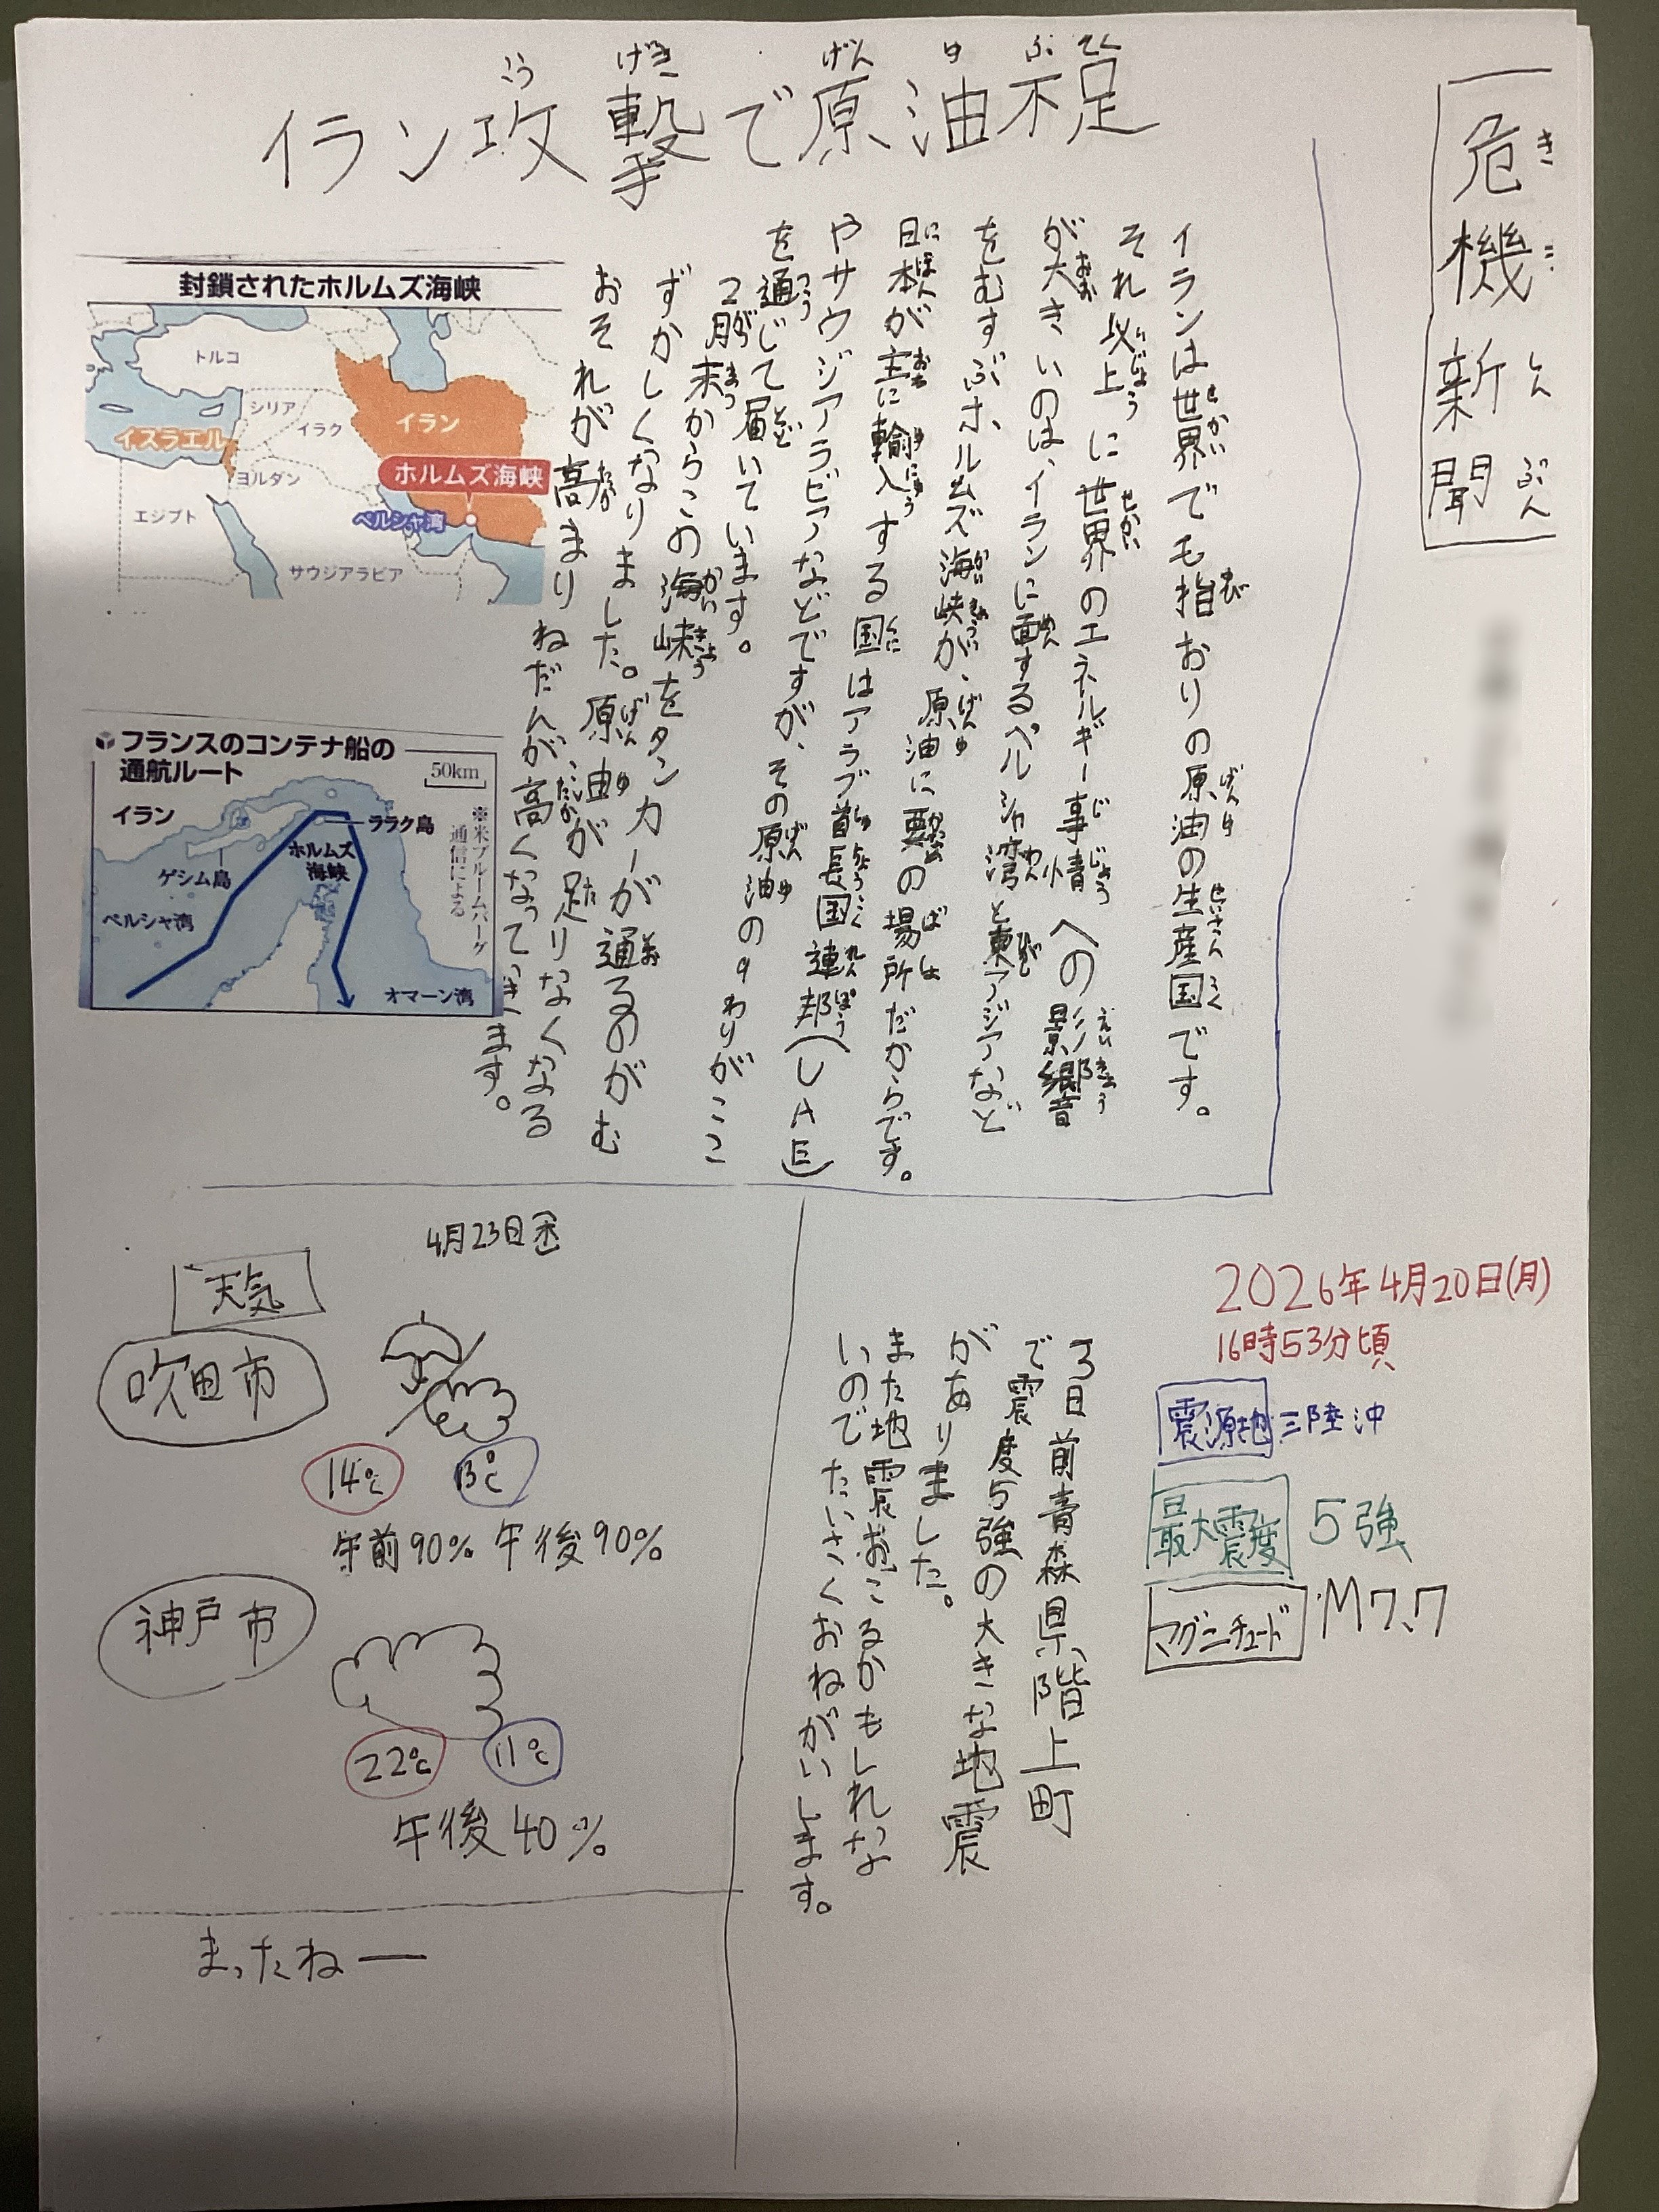 危機新聞
きき しんぶん
イラン攻撃で原油不足
こう げき げん ゆ ぶ そく
イランは世界でも指おりの原油の生産国です。
それ以上に世界のエネルギー事情への影響
が大きいのは、イランに面するペルシャ湾と東アジアなど
をむすぶホルムズ海峡が、原油に重要の場所だからです。
日本が主に輸入する国はアラブ首長国連邦(UAE)
やサウジアラビアなどですが、その原油の9わりがここ
を通じて届いています。
2月末からこの海峡をタンカーが通るのがむ
ずかしくなりました。原油が足りなくなる
おそれが高まりねだんが高くなっています。
封鎖されたホルムズ海峡
トルコ
シリア
イスラエル
イラク
イラン
ヨルダン
ホルムズ海峡
エジプト
ペルシャ湾
サウジアラビア
フランスのコンテナ船の
通航ルート
50km
イラン
ララク島
ホルムズ
海峡
ゲシム島
ペルシャ湾
オマーン湾
※米ブルームバーグ
通信による
2026年4月20日(月)
16時53分頃
震源地 三陸沖
最大震度 5強
マグニチュード M7.7
3日前青森県階上町
で震度5強の大きな地震
がありました。
また地震おこるかもしれな
いのでたいさくおねがいします。
4月23日(木)
天気
吹田市
14℃ 13℃
午前90% 午後90%
神戸市
22℃ 11℃
午後40%
まったねー